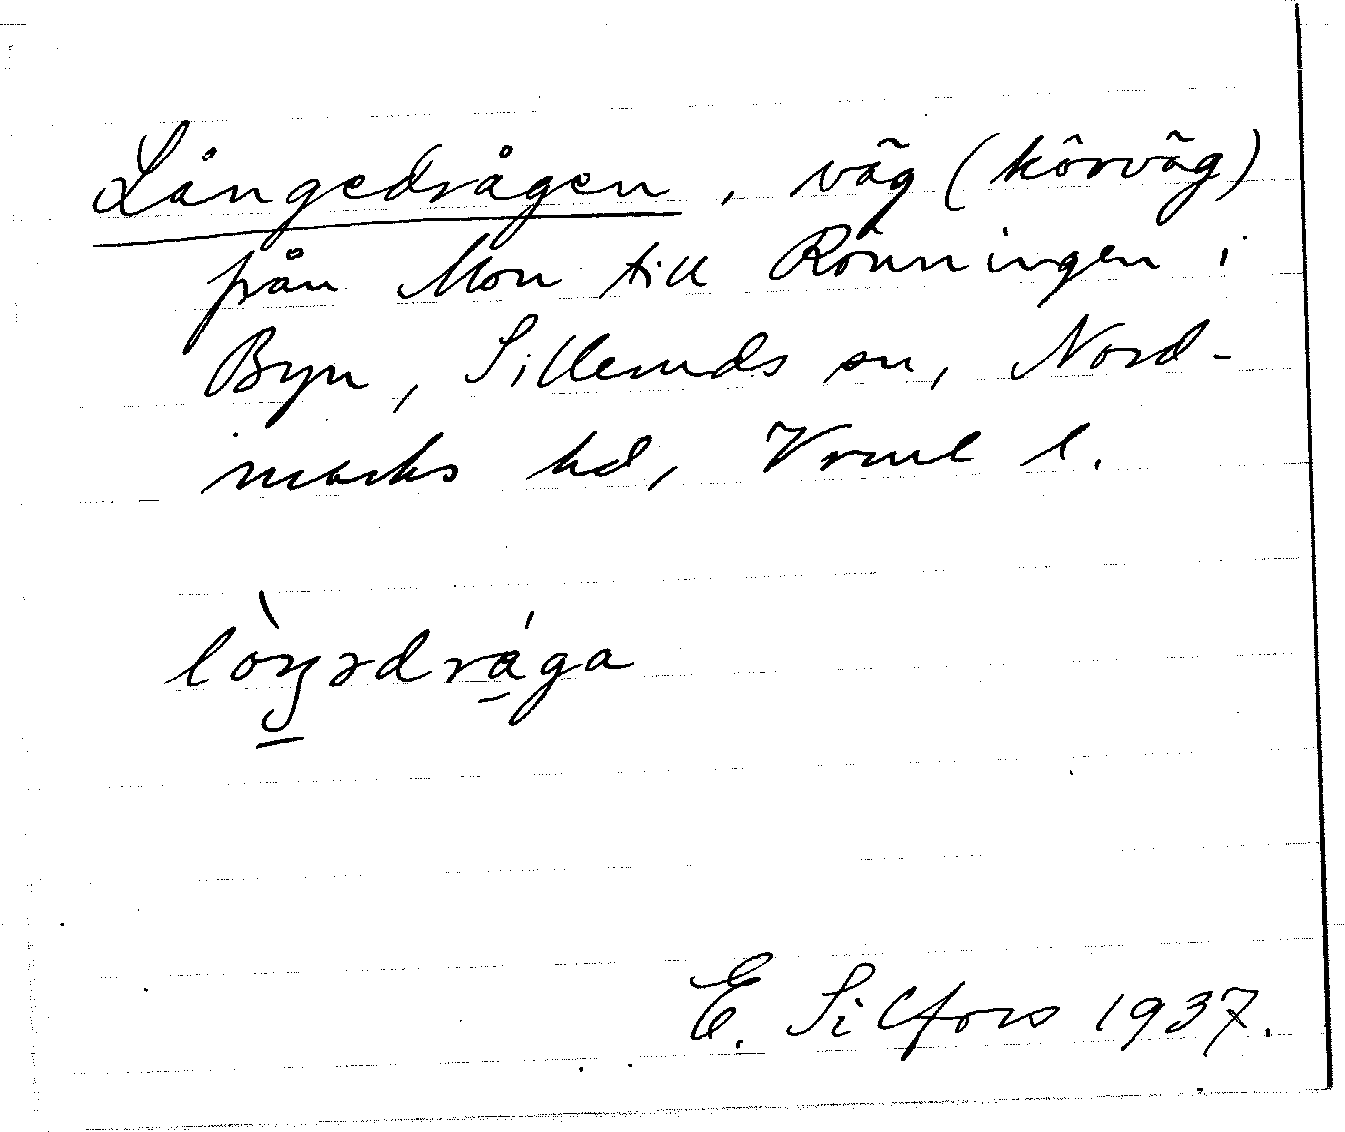 Långedrågen, väg (körväg)
från Mon till Rönningen i
Byn, Silleruds sn, Nord-
marks hd, Vrml l.
lòŋədrága
E. Silfors 1937.